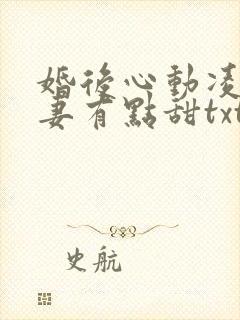 婚後心動凌
妻有點甜txt
史航